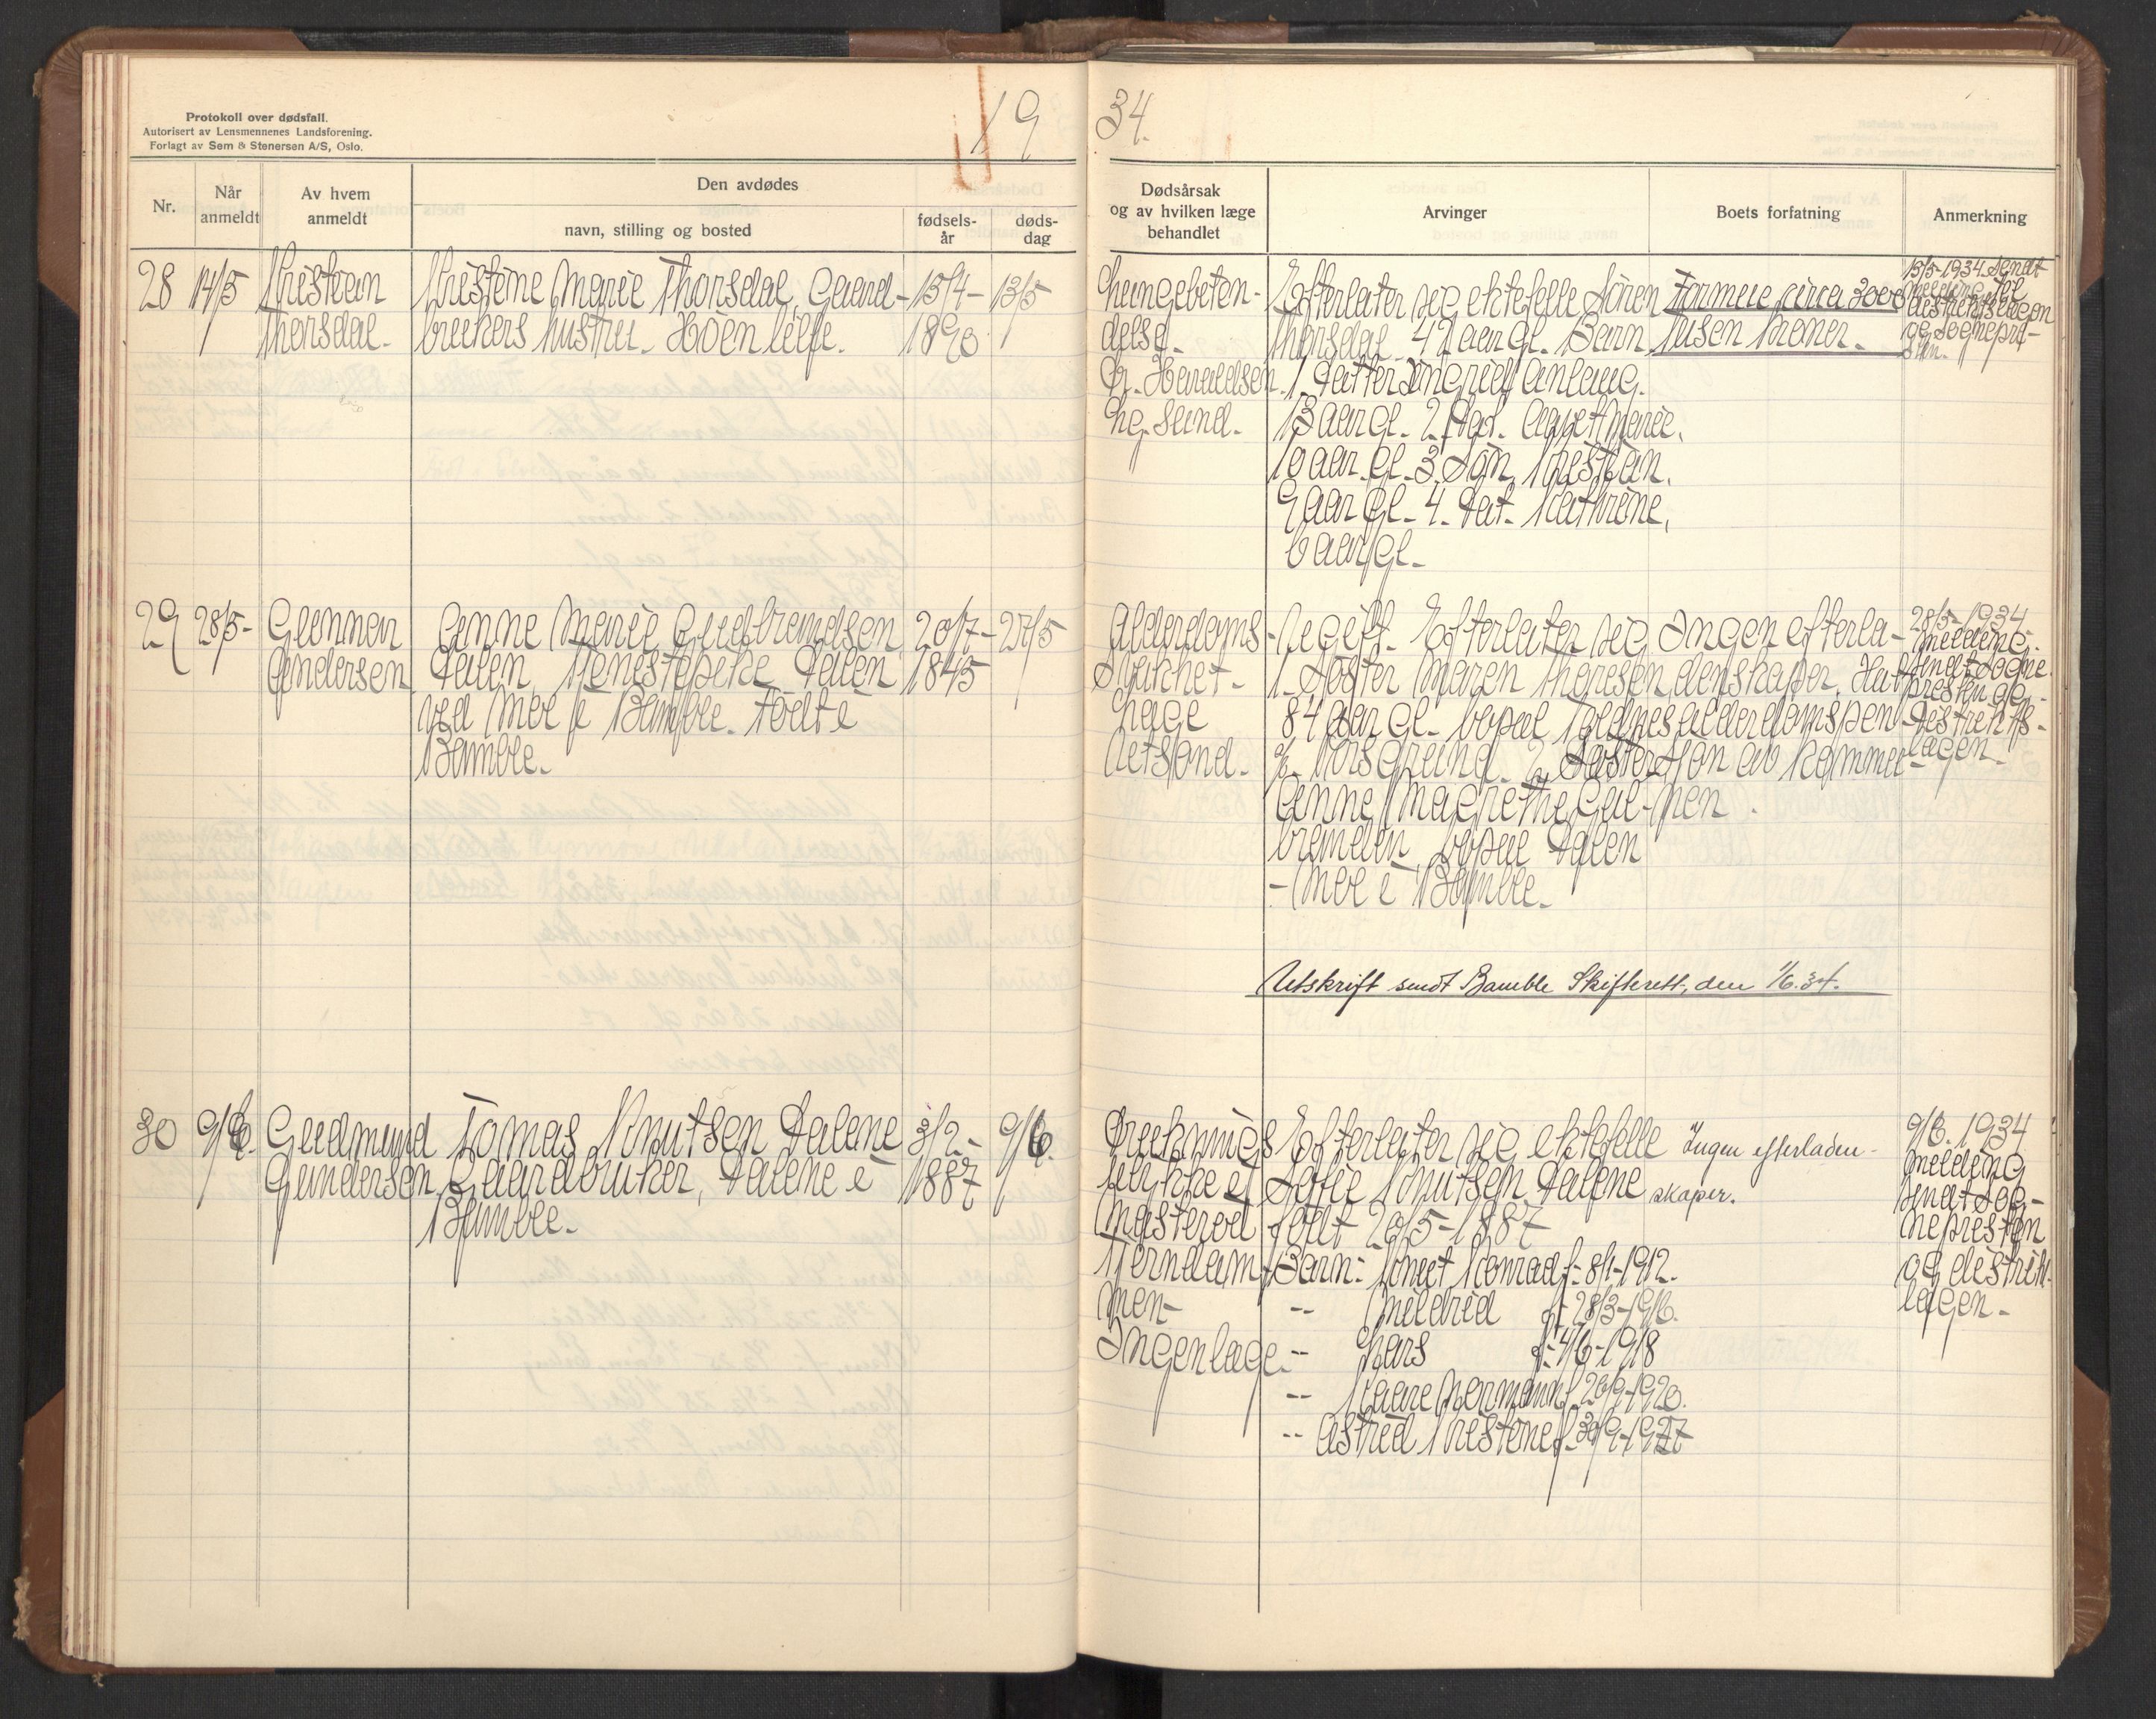 Protokoll over dødsfall.
Autorisert av Lensmennenes Landsforening.
Forlagt av Sem & Stenersen A/S, Oslo.
19
34.
Nr.
Når anmeldt
Av hvem anmeldt
Den avdødes
navn, stilling og bosted
fødsels-
år
døds-
dag
Dødsårsak
og av hvilken læge
behandlet
Arvinger
Boets forfatning
Anmerkning
28
14/5
Kristian
Thorsdal.
Kristine Marie Thorsdal, Gaard-
brukers hustru. Höen lille.
15/4-
1890
13/5
Lungebeten-
delse.
Dr. Haraldsen
Lg.sund.
Efterlater sig ektefelle Sören
Thorsdal 42 aar gl. Barn
1. datter Ingrid Anlaug.
13 aar gl. 2. dat. Aagot Marie.
10 aar gl. 3. Sön Kristian.
9 aar gl. 4. dat. Kathrine.
6 aar gl.
Formue circa 3000
tusen kroner.
15/5-1934 sendt
melding til
distriktslægen
og sognepre-
sten.
29
28/5-
Gunnar
Andersen
Anne Marie Gudbrandsen
Dalen, Tjenestepike Dalen
ved Moe i Bamble. Födt i
Bamble.
20/7-
1845
27/5
Alderdoms-
svakhet-
Læge
Aetsland.
Ugift. Efterlater sig
1. Söster Maren Thoresen
84 aar gl. bopæl Tollnes
p/ Porsgrund. 2. Söster
Anne Magrethe Gul-
brandsen, bopæl Dalen
- Moe i Bamble.
Ingen efterla-
denskaper. Hat
alderdomspen-
sjon av kommu-
nen.
28/5-1934
melding
sendt Sogne
presten og
distrikts-
lægen.
Utskrift sendt Bamble Skifterett, den 1/6.34.
30
9/6.
Gudmund
Gundersen
Tomas Knutsen Dalene
Gaardbruker, Dalene i
Bamble.
3/2-
1887
9/6.
Druknings
ulykke i
Mosteröd
Tjerndam-
men-
Ingen læge.
Efterlater sig ektefelle
Sofie Knutsen Dalene
födt 20/5-1887
Barn: Knut Konrad f. 8/1-1912.
-- Mildrid f. 28/3-1916.
-- Lars f. 4/6-1918
-- Kaare Normann f. 20/9-1920.
-- Astrid Kristine f. 30/9-1927
Ingen efterladen-
skaper.
9/6. 1934
melding
sendt Sog-
nepresten
og distrikts-
lægen.